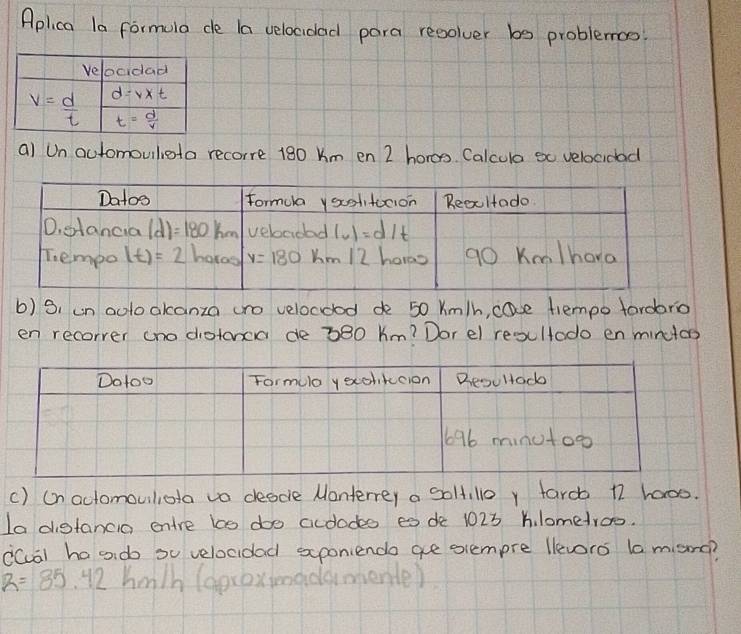 Aplica la fórmula de la velocidad para resolver los problemas:
Velocidad
V = d/t
d=vxt
t = d/v
a) Un automovilista recorre 180 Km en 2 horas. Calcula su velocidad
Datos Formula y sustitución Resultado.
Distancia (d)=180 km velocidad (v)=d/t
Tiempo (t)= 2 horas v= 180 Km/2 horas 90 Km/hora
b) Si un auto alcanza una velocidad de 50 Km/h, que tiempo tardaria
en recorrer una distancia de 580 Km? Dar el resultado en minutos
Datos Formula y sustitucion Resultado
696 minutos
c) Un automovilista va desde Monterrey a Saltillo y tarda 12 horas.
la distancia entre las dos ciudades es de 1025 Kilometros.
¿Cuál ha sido su velocidad suponiendo que siempre llevara la misma?
R= 85.42 km/h (aproximadamente)